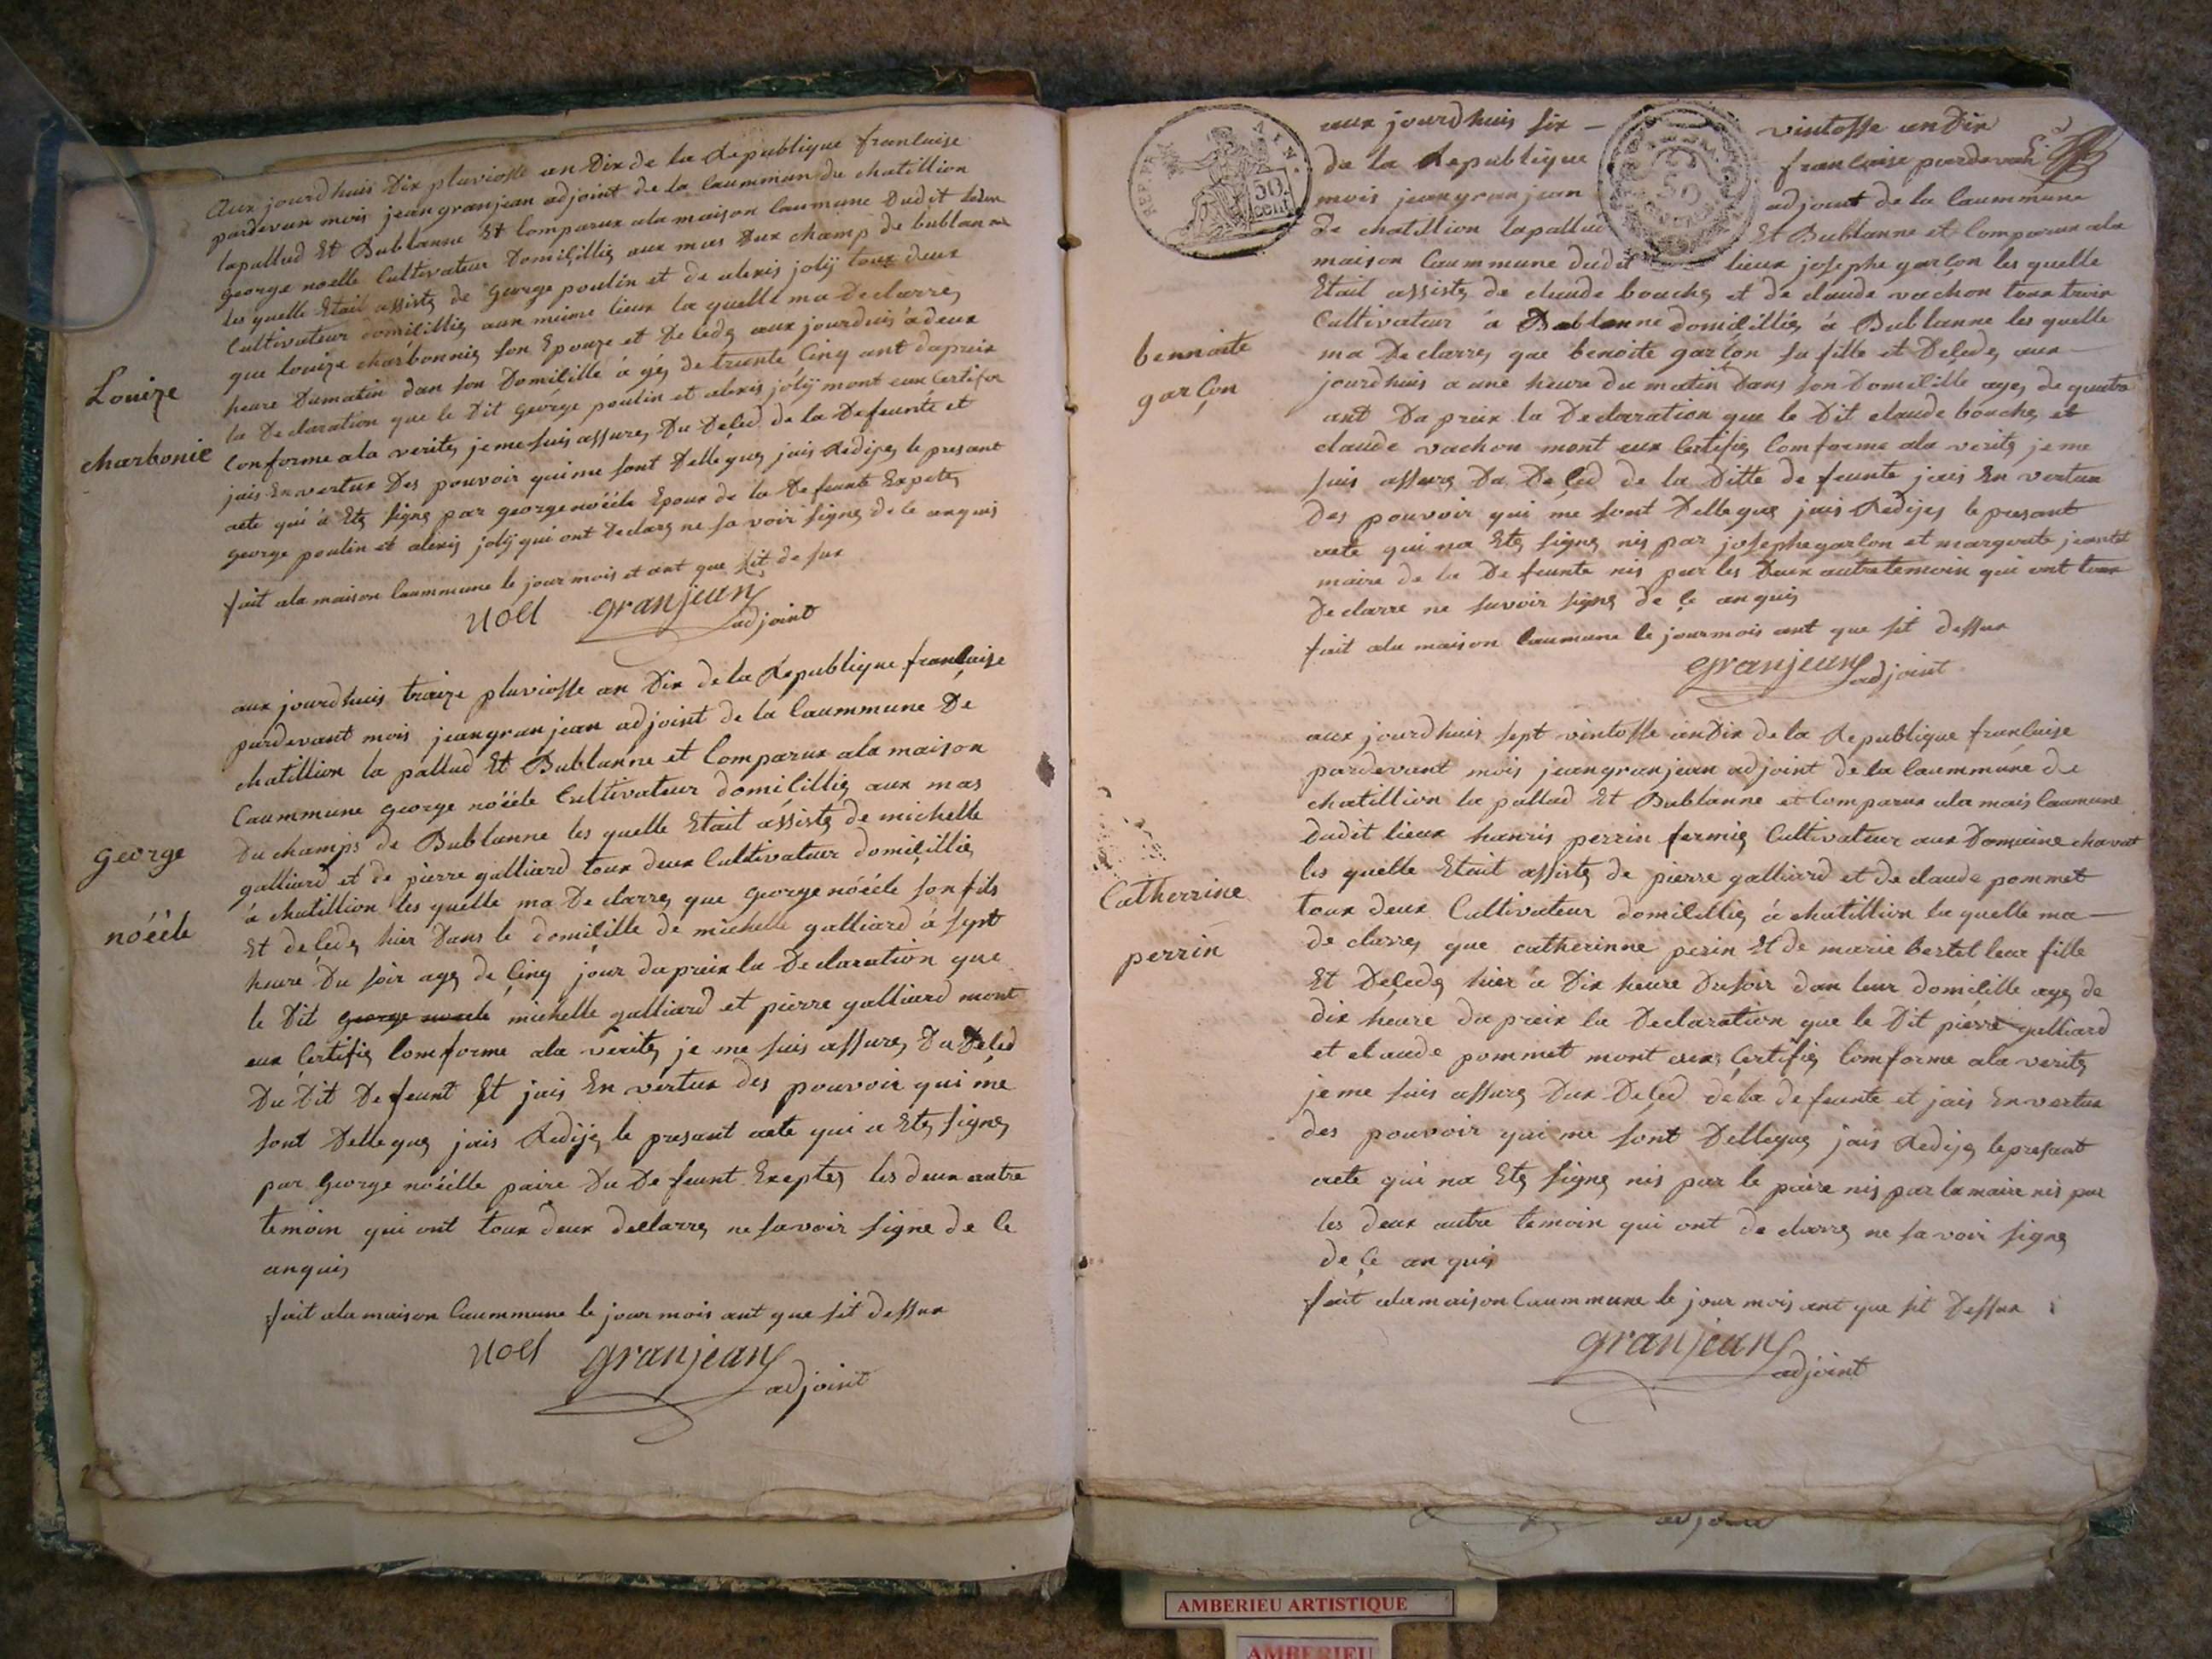 Louize
charbonie
Aux jourdhuis Dix pluviosse an Dix de la Republique franlaise
pardevan mois jean granjean adjoint de la Caummun du chatillion
lapallud Et Bublanne Et Comparux ala maison Caumune Dudit lieux
george noelle Cultivateur Domicillies aux mas Dux champ de bublanne
les quelle Etait assistes de george poulin et de alexis jolij toux deux
Cultivateur domicillies aux meime lieux la quelle ma Declarres
que louize charbonnies son Epouze et Decedes aux jourduis à deux
heure Dumatin dan son Domicille à gés de trante Cinq ant dapreix
la Declaration que le Dit george poulin et alexis jolij mont eux Certifies
Conforme ala verites je me suis assures Du Deced de la Defeunte et
jais En vertux Des pouvoir qui me sont Delleques jais Redijes le presant
acte qui à Etes signes par george noéele Epoux de la Defeunte Exepetes
george poulin et alexis jolij qui ont Declares ne sa voir signes de ce anquis
fait ala maison Caummune le jour mois et ant que sit de sux
noel granjean
adjoint
george
noéele
aux jourdhuis traize pluviosse an Dix de la Republique francaise
pardevant mois jean granjean adjoint de la Caummune De
chatillion la pallud Et Bublanne et Comparux ala maison
Caummune george noéele Cultivateur domicillies aux mas
Du champs de Bublanne les quelle Etait assistes de michelle
galliard et de pierre galliard toux deux Cultivateur domicillies
à chatillion les quelle ma Declarres que george noéele son fils
Et decedes hier Dans le domicille de michelle galliard à sept
heure Du soir ages de Cinq jour dapreix la Declaration que
le Dit george noéele michelle galliard et pierre galliard mont
eux Certifies Comforme ala verites je me suis assures Du Deced
Du Dit Defeunt Et jais En vertux des pouvoir qui me
sont Delleques jais Redijes le presant acte qui a Etes signes
par george noéelle paire Du Defeunt Exeptes les deux autre
temoin qui ont toux deux declarres ne savoir signe de Ce
anquis
fait ala maison Caummune le jour mois ant que sit dessux
noel granjean
adjoint
REP. FRA. AIN.
50
cent.
50
bennoite
garçon
aux jourdhuis six — vintosse an Dix
de la Republique francaise pardevan
mois jean granjean adjoint de la Caummune
De chatillion lapallud Et Bublanne et Comparux ala
maison Caummune dudit lieux josephe garçon les quelle
Etait assistes de claude bouches et de claude vachon toux troix
Cultivateur à Bublanne domicillies à Bublanne les quelle
ma Declarres que benoite garçon sa fille et Decedes aux
jourdhuis a une heure du matin Dans son Domicille ages de quatre
ant Da preix la Declaration que le Dit claude bouches et
claude vachon mont eux Certifies Comforme ala verites je me
suis assures Du Deced de la Ditte de feunte jais En vertux
Des pouvoir qui me sont Delleques jais Redijes le presant
acte qui na Etes signes nis par josephe garçon et margerate jeantet
maire de la Defeunte nis par les Deux autre temoin qui ont toux
Declarre ne savoir signes de ce anquis
fait ala maison Caumune le jour mois ant que sit dessux
granjean
adjoint
Catherrine
perrin
aux jourdhuis sept vintosse an Dix de la Republique franlaise
pardevant mois jean granjean adjoint de la Caummune de
chatillion la pallud Et Bublanne et Comparux ala mais Caumune
Dudit lieux hanris perrin fermies Cultivateur aux Domaine chavat
les quelle Etait assistes de pierre galliard et de claude pommet
toux deux Cultivateur domicillies à chatillion la quelle ma —
de clarres que catherinne perin Et de marie bertet leur fille
Et Decedes hier à Dix heure Dusoir dan leur domicille ages de
dix heure da preix la Declaration que le Dit pierre galliard
et claude pommet mont eux Certifies Comforme ala verites
je me suis assures Dux Deced dela defeunte et jais En vertux
des pouvoir qui me sont Delleques jais Redijes le presant
acte qui na Etes signes nis par le paire nis par la maire nis par
les deux autre temoin qui ont de clarres ne sa voir signes
de ce an quis
fait ala maison Caummune le jour mois ant que sit Dessux
granjean
adjoint
adjoint
AMBERIEU ARTISTIQUE
AMBERIEU